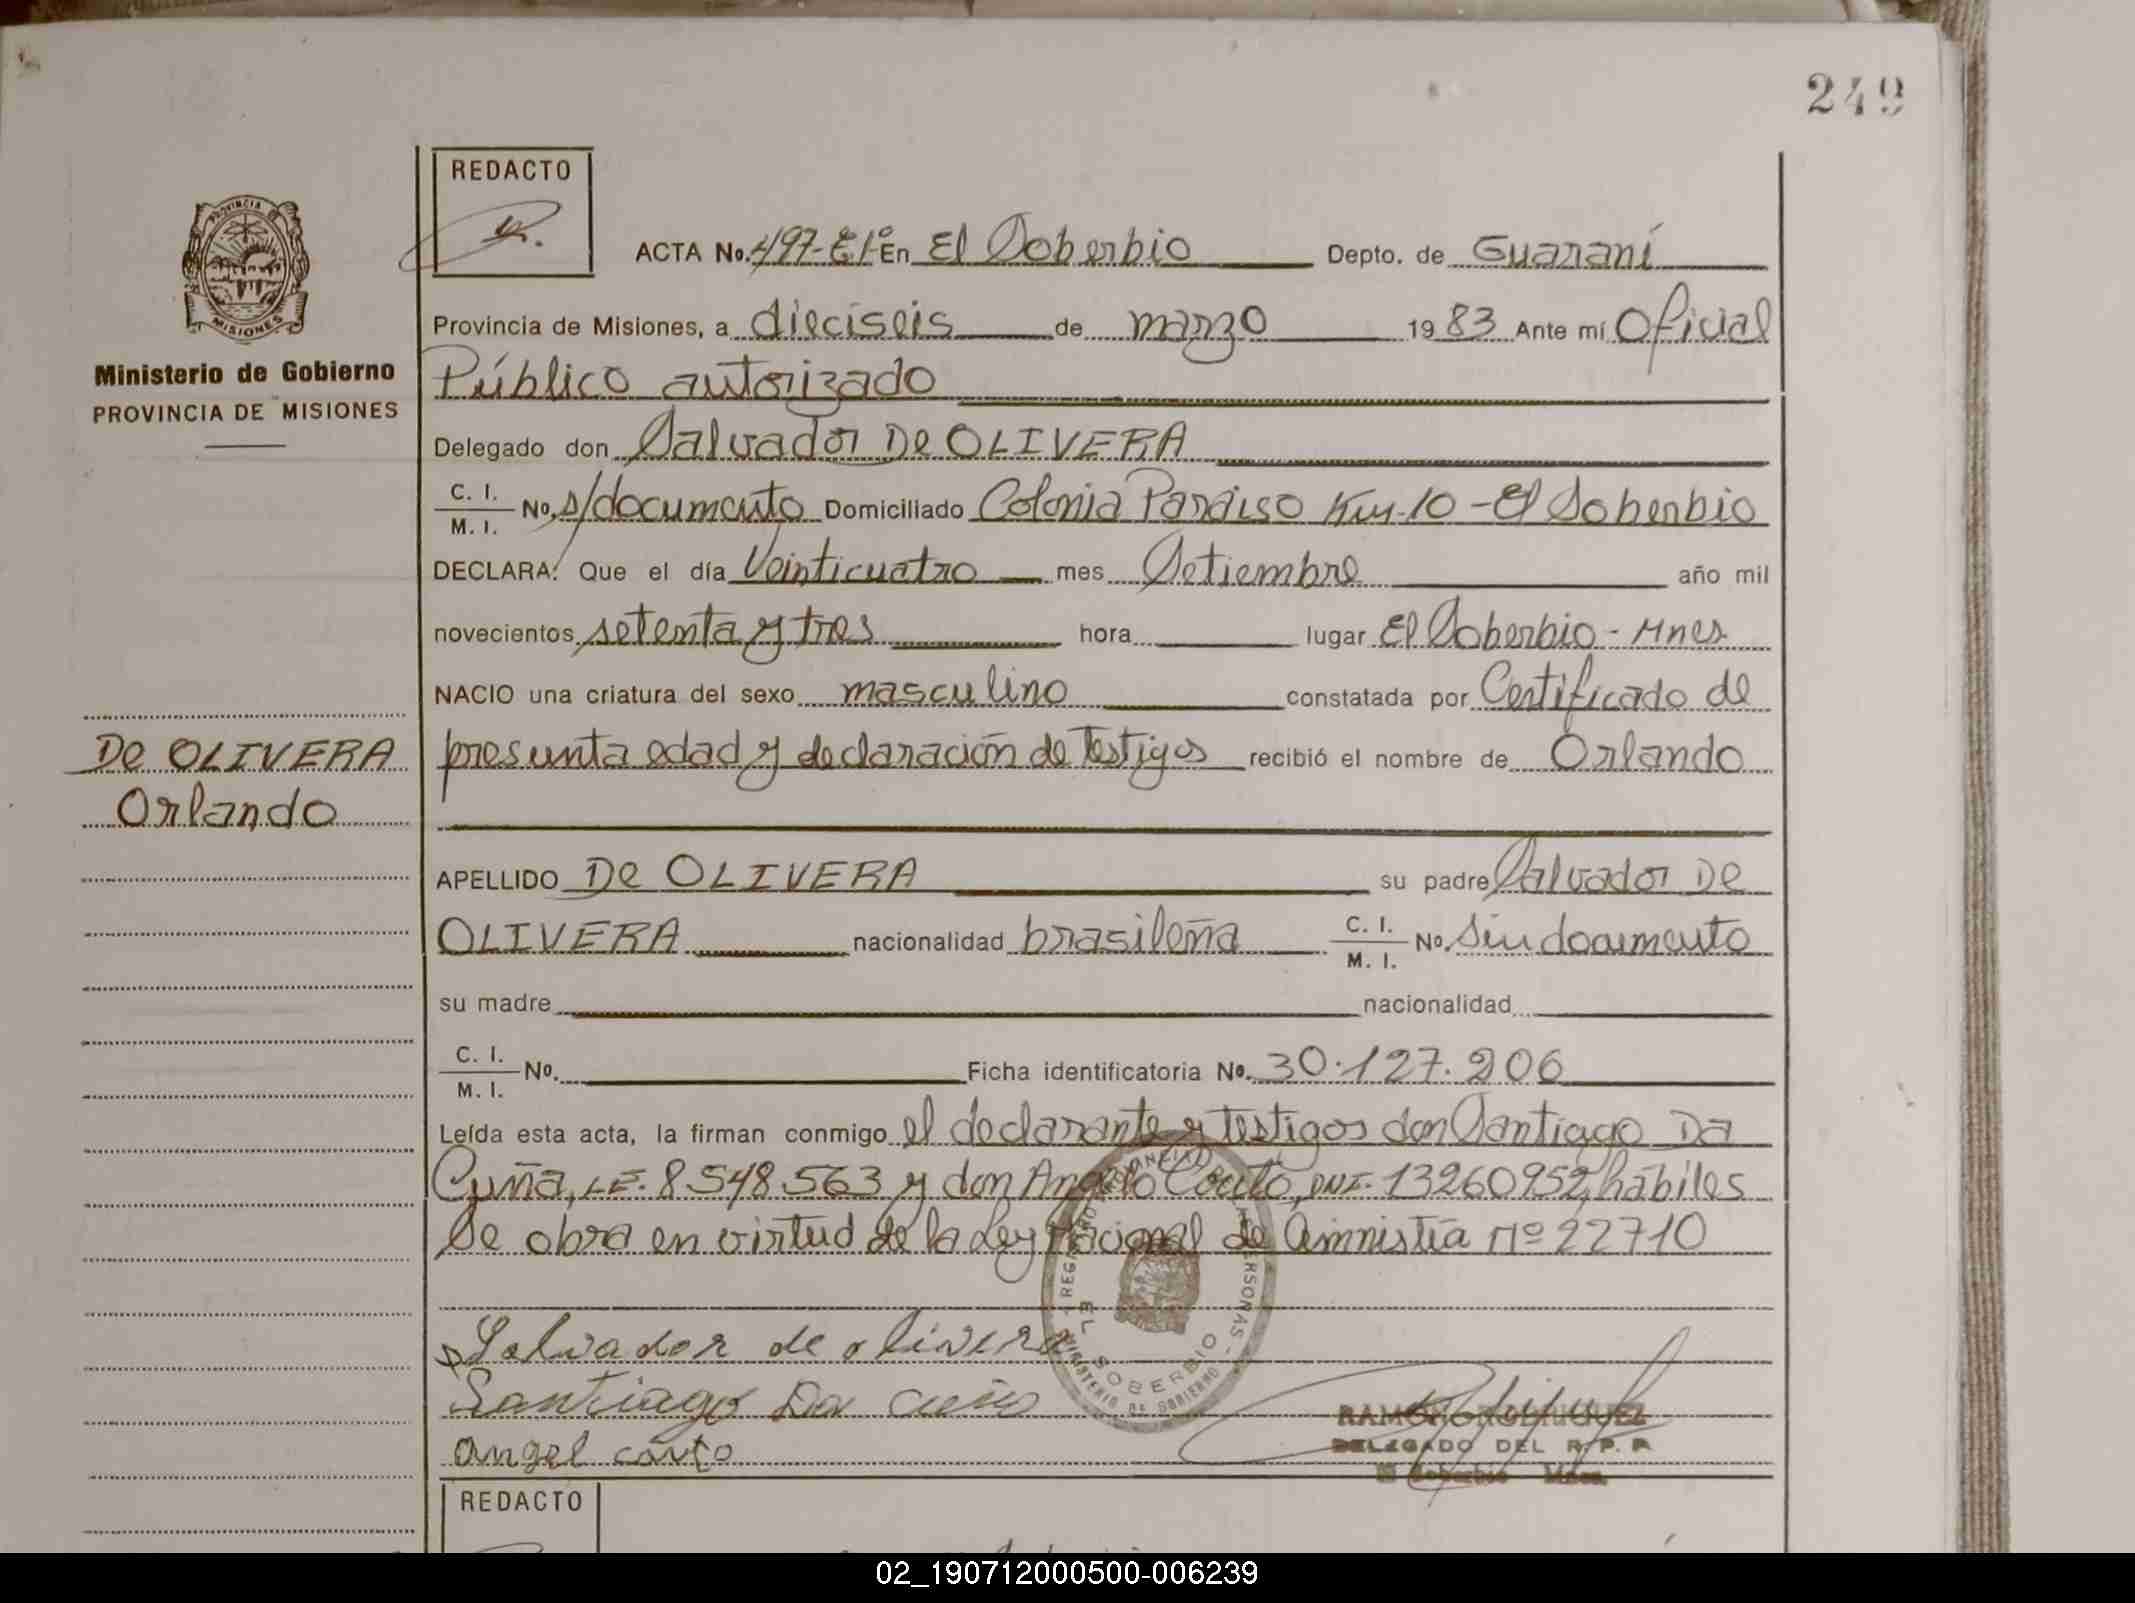 249
REDACTO
PROVINCIA DE
MISIONES
Ministerio de Gobierno
PROVINCIA DE MISIONES
ACTA No. 497-E1º En El Soberbio Depto. de Guaraní
Provincia de Misiones, a dieciseis de marzo 1983 Ante mí Oficial
Público autorizado
Delegado don Salvador De OLIVERA
C. I. / M. I. No. s/documento Domiciliado Colonia Paraiso Km-10 - El Soberbio
DECLARA: Que el día Veinticuatro mes Setiembre año mil
novecientos setenta y tres hora lugar El Soberbio - Mnes
NACIO una criatura del sexo masculino constatada por Certificado de
presunta edad y declaración de Testigos recibió el nombre de Orlando
De OLIVERA
Orlando
APELLIDO De OLIVERA su padre Salvador De
OLIVERA nacionalidad brasileña C. I. / M. I. No. Sin documento
su madre nacionalidad
C. I. / M. I. No. Ficha identificatoria No. 30.127.206
Leída esta acta, la firman conmigo el declarante y testigos don Santiago Da
Cuña, LE. 8.548.563 y don Angelo Couto, DNI. 13260952, hábiles
Se obra en virtud de la Ley Nacional de Amnistía Nº 22710
Salvador de olivera
Santiago Da Cuña
angel couto
EL SOBERBIO
MINISTERIO DE GOBIERNO
RAMON RODRIGUEZ
DELEGADO DEL R. P. P.
El Soberbio Mnes.
REDACTO
02_190712000500-006239